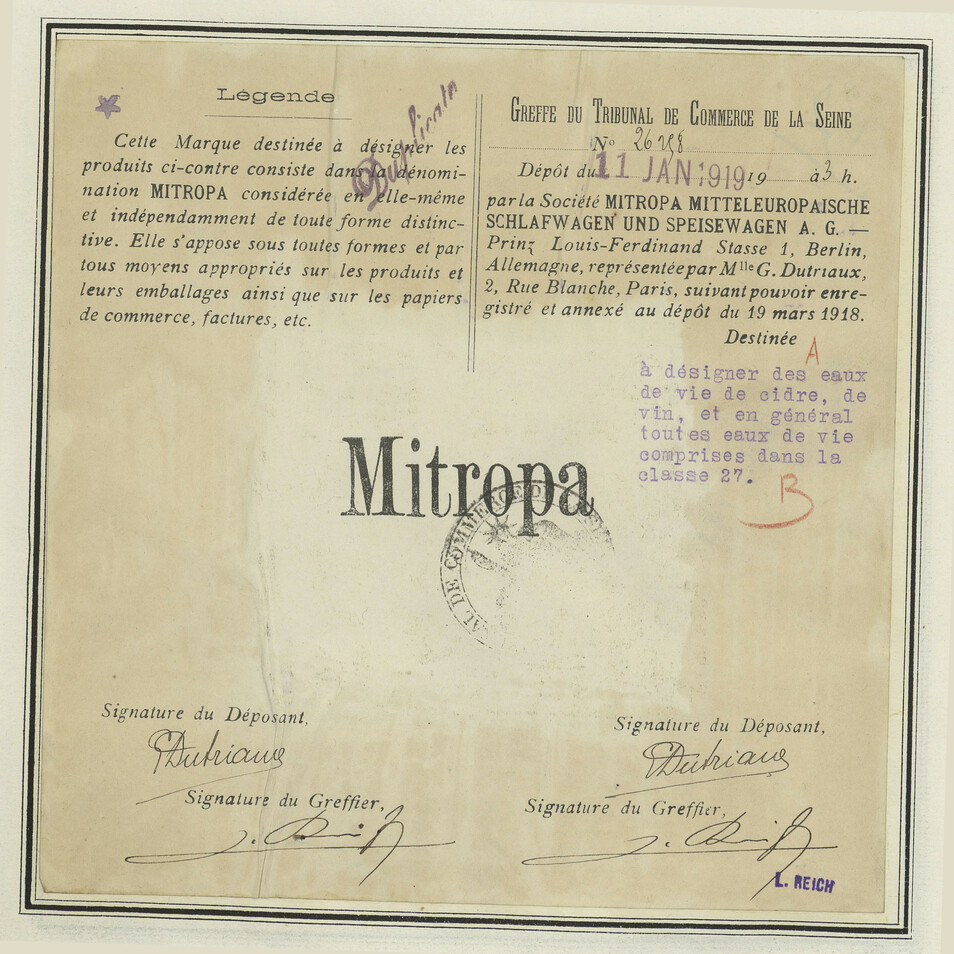 Légende
Duplicata
Cette Marque destinée à désigner les
produits ci-contre consiste dans la dénomi-
nation MITROPA considérée en elle-même
et indépendamment de toute forme distinc-
tive. Elle s'appose sous toutes formes et par
tous moyens appropriés sur les produits et
leurs emballages ainsi que sur les papiers
de commerce, factures, etc.
GREFFE DU TRIBUNAL DE COMMERCE DE LA SEINE
No
Dépôt du 11 JAN 1919 19 à 3 h.
par la Société MITROPA MITTELEUROPAISCHE
SCHLAFWAGEN UND SPEISEWAGEN A. G. —
Prinz Louis-Ferdinand Stasse 1, Berlin,
Allemagne, représentée par Mlle G. Dutriaux,
2, Rue Blanche, Paris, suivant pouvoir enre-
gistré et annexé au dépôt du 19 mars 1918.
Destinée
A
à désigner des eaux
de vie de cidre, de
vin, et en général
toutes eaux de vie
comprises dans la
classe 27.
B
Mitropa
AL DE COMMERCE DE
Signature du Déposant,
GDutriaux
Signature du Greffier,
Signature du Déposant,
GDutriaux
Signature du Greffier,
L. REICH